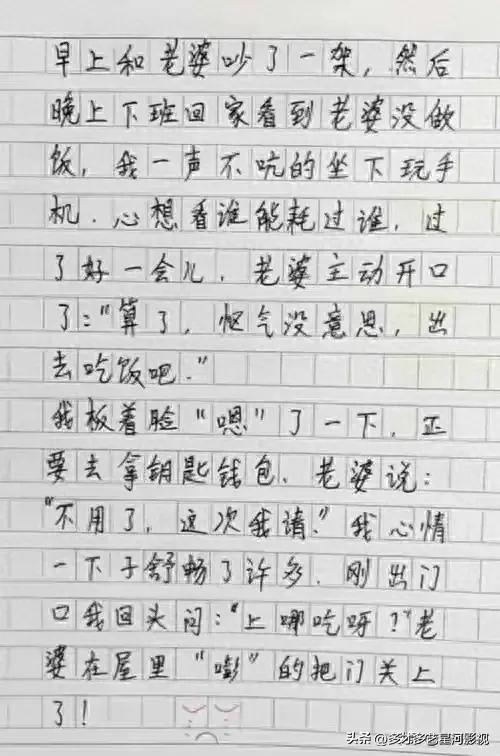 早上和老婆吵了一架，然后
晚上下班回家看到老婆没做
饭，我一声不吭的坐下玩手
机．心想看谁能耗过谁，过
了好一会儿．老婆主动开口
了："算了，怄气没意思，出
去吃饭吧."
我板着脸"嗯"了一下．正
要去拿钥匙钱包．老婆说：
"不用了，这次我请."我心情
一下子舒畅了许多．刚出门
口我回头问："上哪吃呀？"老
婆在屋里"嘭"的把门关上
了！
头条 @多才多艺星河影视